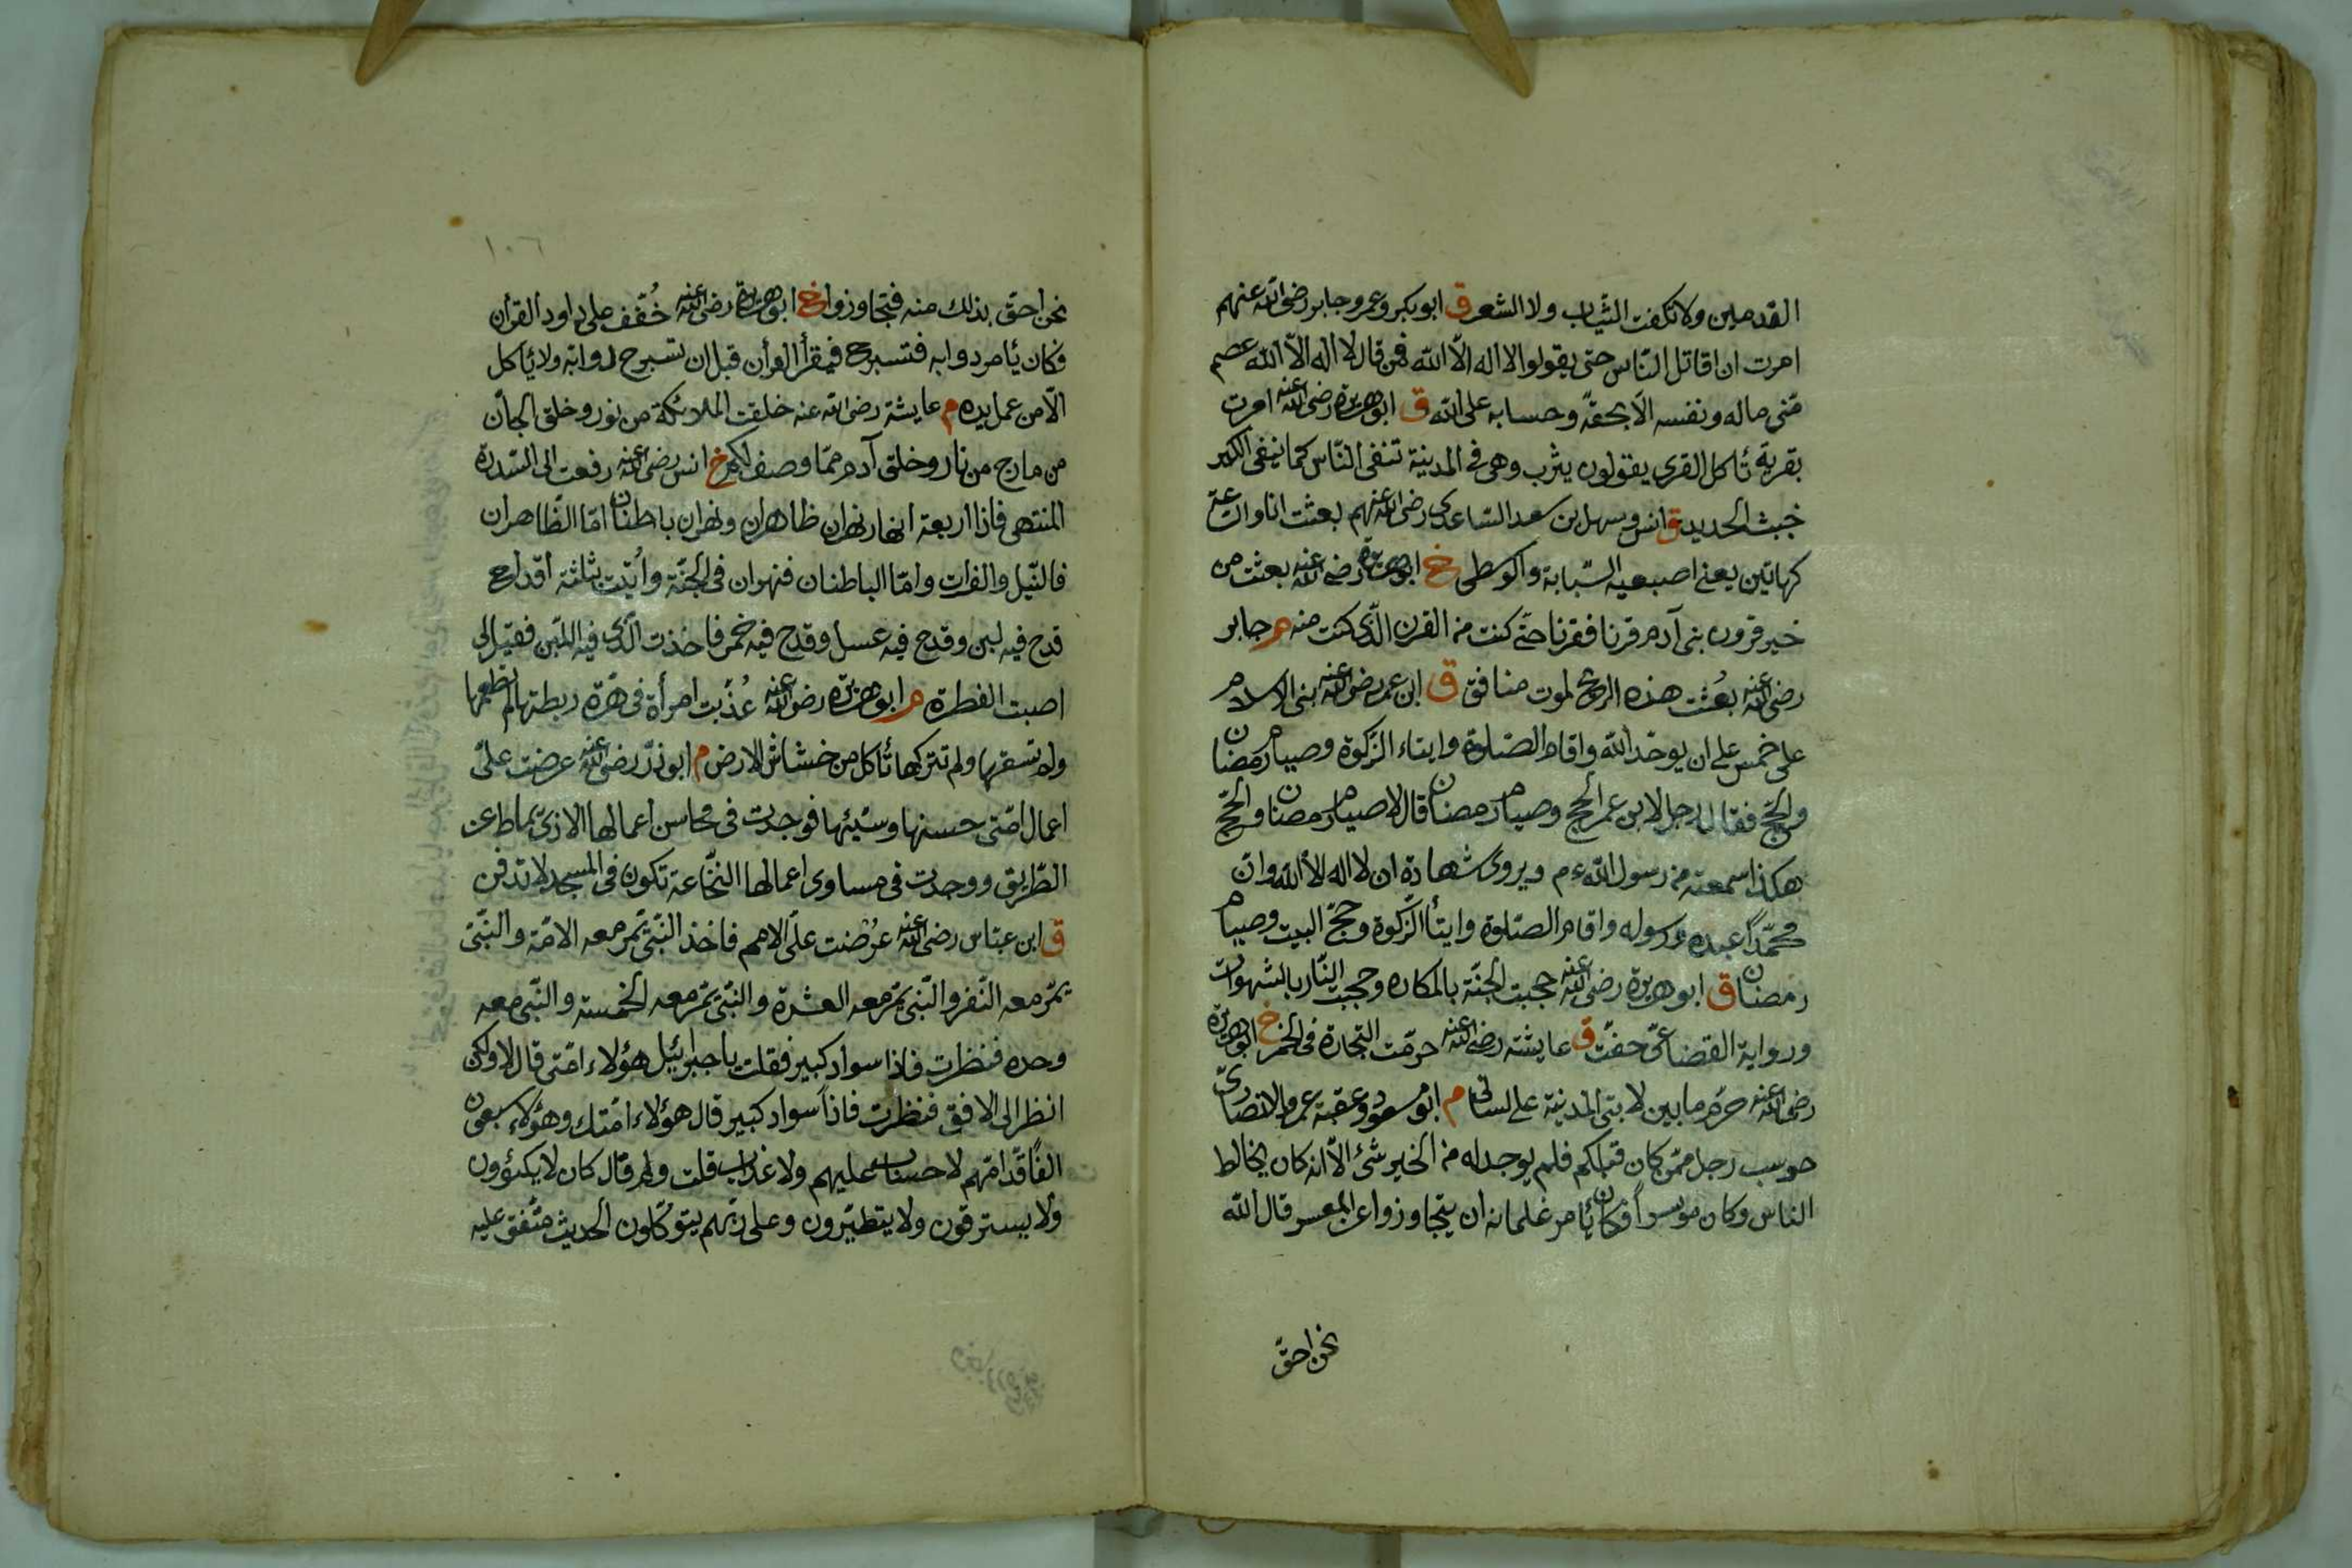 القدمين ولا تكفت الثياب ولا الشعر ق ابو بكر وعمر وجابر رضى الله عنهم
امرت ان اقاتل الناس حتى يقولوا لا اله الا الله فمن قال لا اله الا الله عصم
منى ماله ونفسه الا بحقه وحسابه على الله ق ابو هريرة رضى الله عنه امرت
بقرية تأكل القرى يقولون يثرب وهى فى المدينة تنفى الناس كما ينفى الكير
خبث الحديد ق انس وسهل بن سعد الساعدى رضى الله عنهم بعثت انا والساعة
كهاتين يعنى اصبعيه السبابة والوسطى خ ابو هريرة رضى الله عنه بعثت من
خير قرون بنى آدم قرنا فقرنا حتى كنت من القرن الذى كنت منه م جابر
رضى الله عنه بعثت هذه الريح لموت منافق ق ابن عمر رضى الله عنه بنى الاسلام
على خمس على ان يوحد الله واقام الصلوة وايتاء الزكوة وصيام رمضان
والحج فقال له رجل لابن عمر الحج وصيام رمضان قال لا صيام رمضان والحج
هكذا سمعته من رسول الله ءم ويروى شهادة ان لا اله الا الله وان
محمدا عبده ورسوله واقام الصلوة وايتأ الزكوة وحج البيت وصيام
رمضان ق ابو هريرة رضى الله عنه حجبت الجنة بالمكاره وحجبت النار بالشهوات
ورواية القضاعى حفت ق عايشة رضى الله عنه حرمت التجارة فى الخمر خ ابو هريرة
رضى الله عنه حرم ما بين لابتى المدينة على لسانى م ابو مسعود وعقبة عمرو الانصارى
حوسب رجل ممن كان قبلكم فلم يوجد له من الخير شئ الا انه كان يخالط
الناس وكان موسرا فكان يأمر غلمانه ان يتجاوزوا عن المعسر قال الله
نحن احق
١٠٦
نحن احق بذلك منه فتجاوزوا خ ابو هريرة رضى الله عنه خُفّف على داود القرأن
فكان يأمر دوابه فتسرج فيقرأ القرأن قبل ان تسرج دوابه ولا يأكل
الا من عمل يده م عايشة رضى الله عنه خلقت الملائكة من نور وخلق الجان
من مارج من نار وخلق آدم مما وصف لكم خ انس رضى الله عنه رفعت الى السدرة
المنتهى فاذا اربعة انهار نهران ظاهران ونهران باطنان اما الظاهران
فالنيل والفرات واما الباطنان فنهران فى الجنة وأتيت بثلثة اقداح
قدح فيه لبن وقدح فيه عسل وقدح فيه خمر فاخذت الذى فيه اللبن فقيل لى
اصبت الفطرة م ابو هريرة رضى الله عنه عُذّبت امرأة فى هرة ربطتها لم تطعمها
ولم تسقها ولم تتركها تأكل من خشاش الارض م ابو ذر رضى الله عنه عرضت علىّ
اعمال امتى حسنها وسيئها فوجدت فى محاسن اعمالها الاذى يماط عن
الطريق ووجدت فى مساوى اعمالها النخاعة تكون فى المسجد لا تدفن
ق ابن عباس رضى الله عنه عُرضت علىّ الامم فاخذ النبى تمر معه الامة والنبى
يمر معه النفر والنبى يمر معه العشرة والنبى يمر معه الخمسة والنبى معه
وحده فنظرت فاذا سواد كبير فقلت يا جبرئيل هؤلاء امتى قال لا ولكن
انظر الى الافق فنظرت فاذا سواد كبير قال هؤلاء امتك وهؤلاء سبعون
الفا قدامهم لا حساب عليهم ولا عذاب قلت ولم قال كان لا يكتؤون
ولا يسترقون ولا يتطيرون وعلى ربهم يتوكلون الحديث متفق عليه